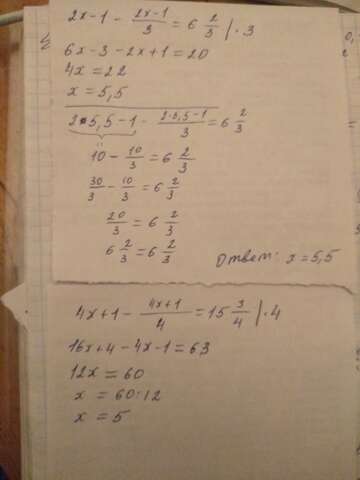 2x-1 - (2x-1)/3 = 6 2/3 | · 3
6x-3-2x+1=20
4x=22
x=5,5
2·5,5-1 - (2·5,5-1)/3 = 6 2/3
10 - 10/3 = 6 2/3
30/3 - 10/3 = 6 2/3
20/3 = 6 2/3
6 2/3 = 6 2/3
Ответ: x=5,5
4x+1 - (4x+1)/4 = 15 3/4 | · 4
16x+4-4x-1=63
12x=60
x=60:12
x=5